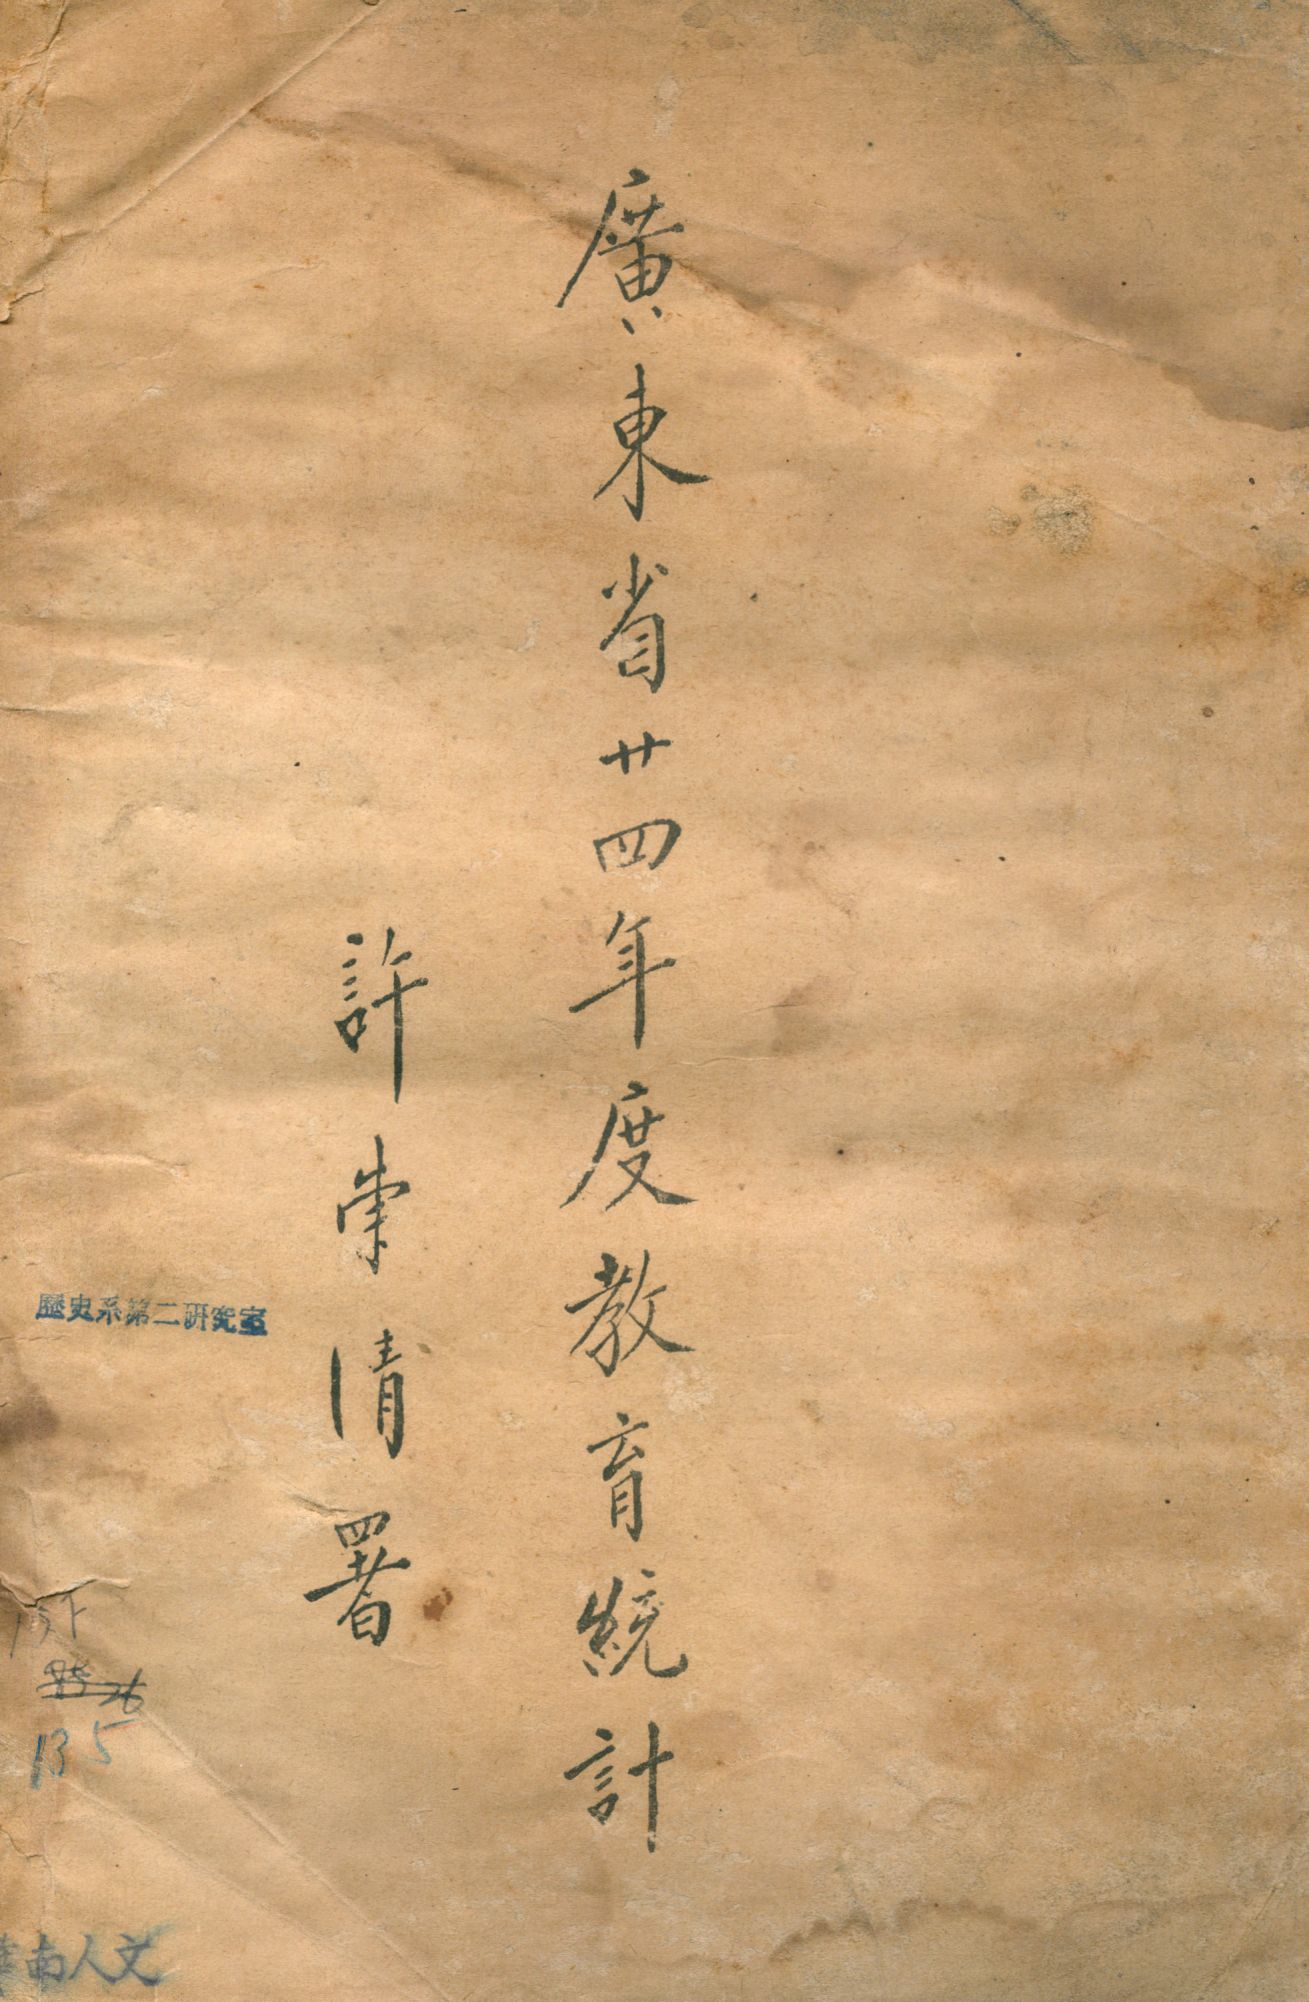 廣東省廿四年度教育統計
許崇清署
歷史系第二研究室
135
南人文